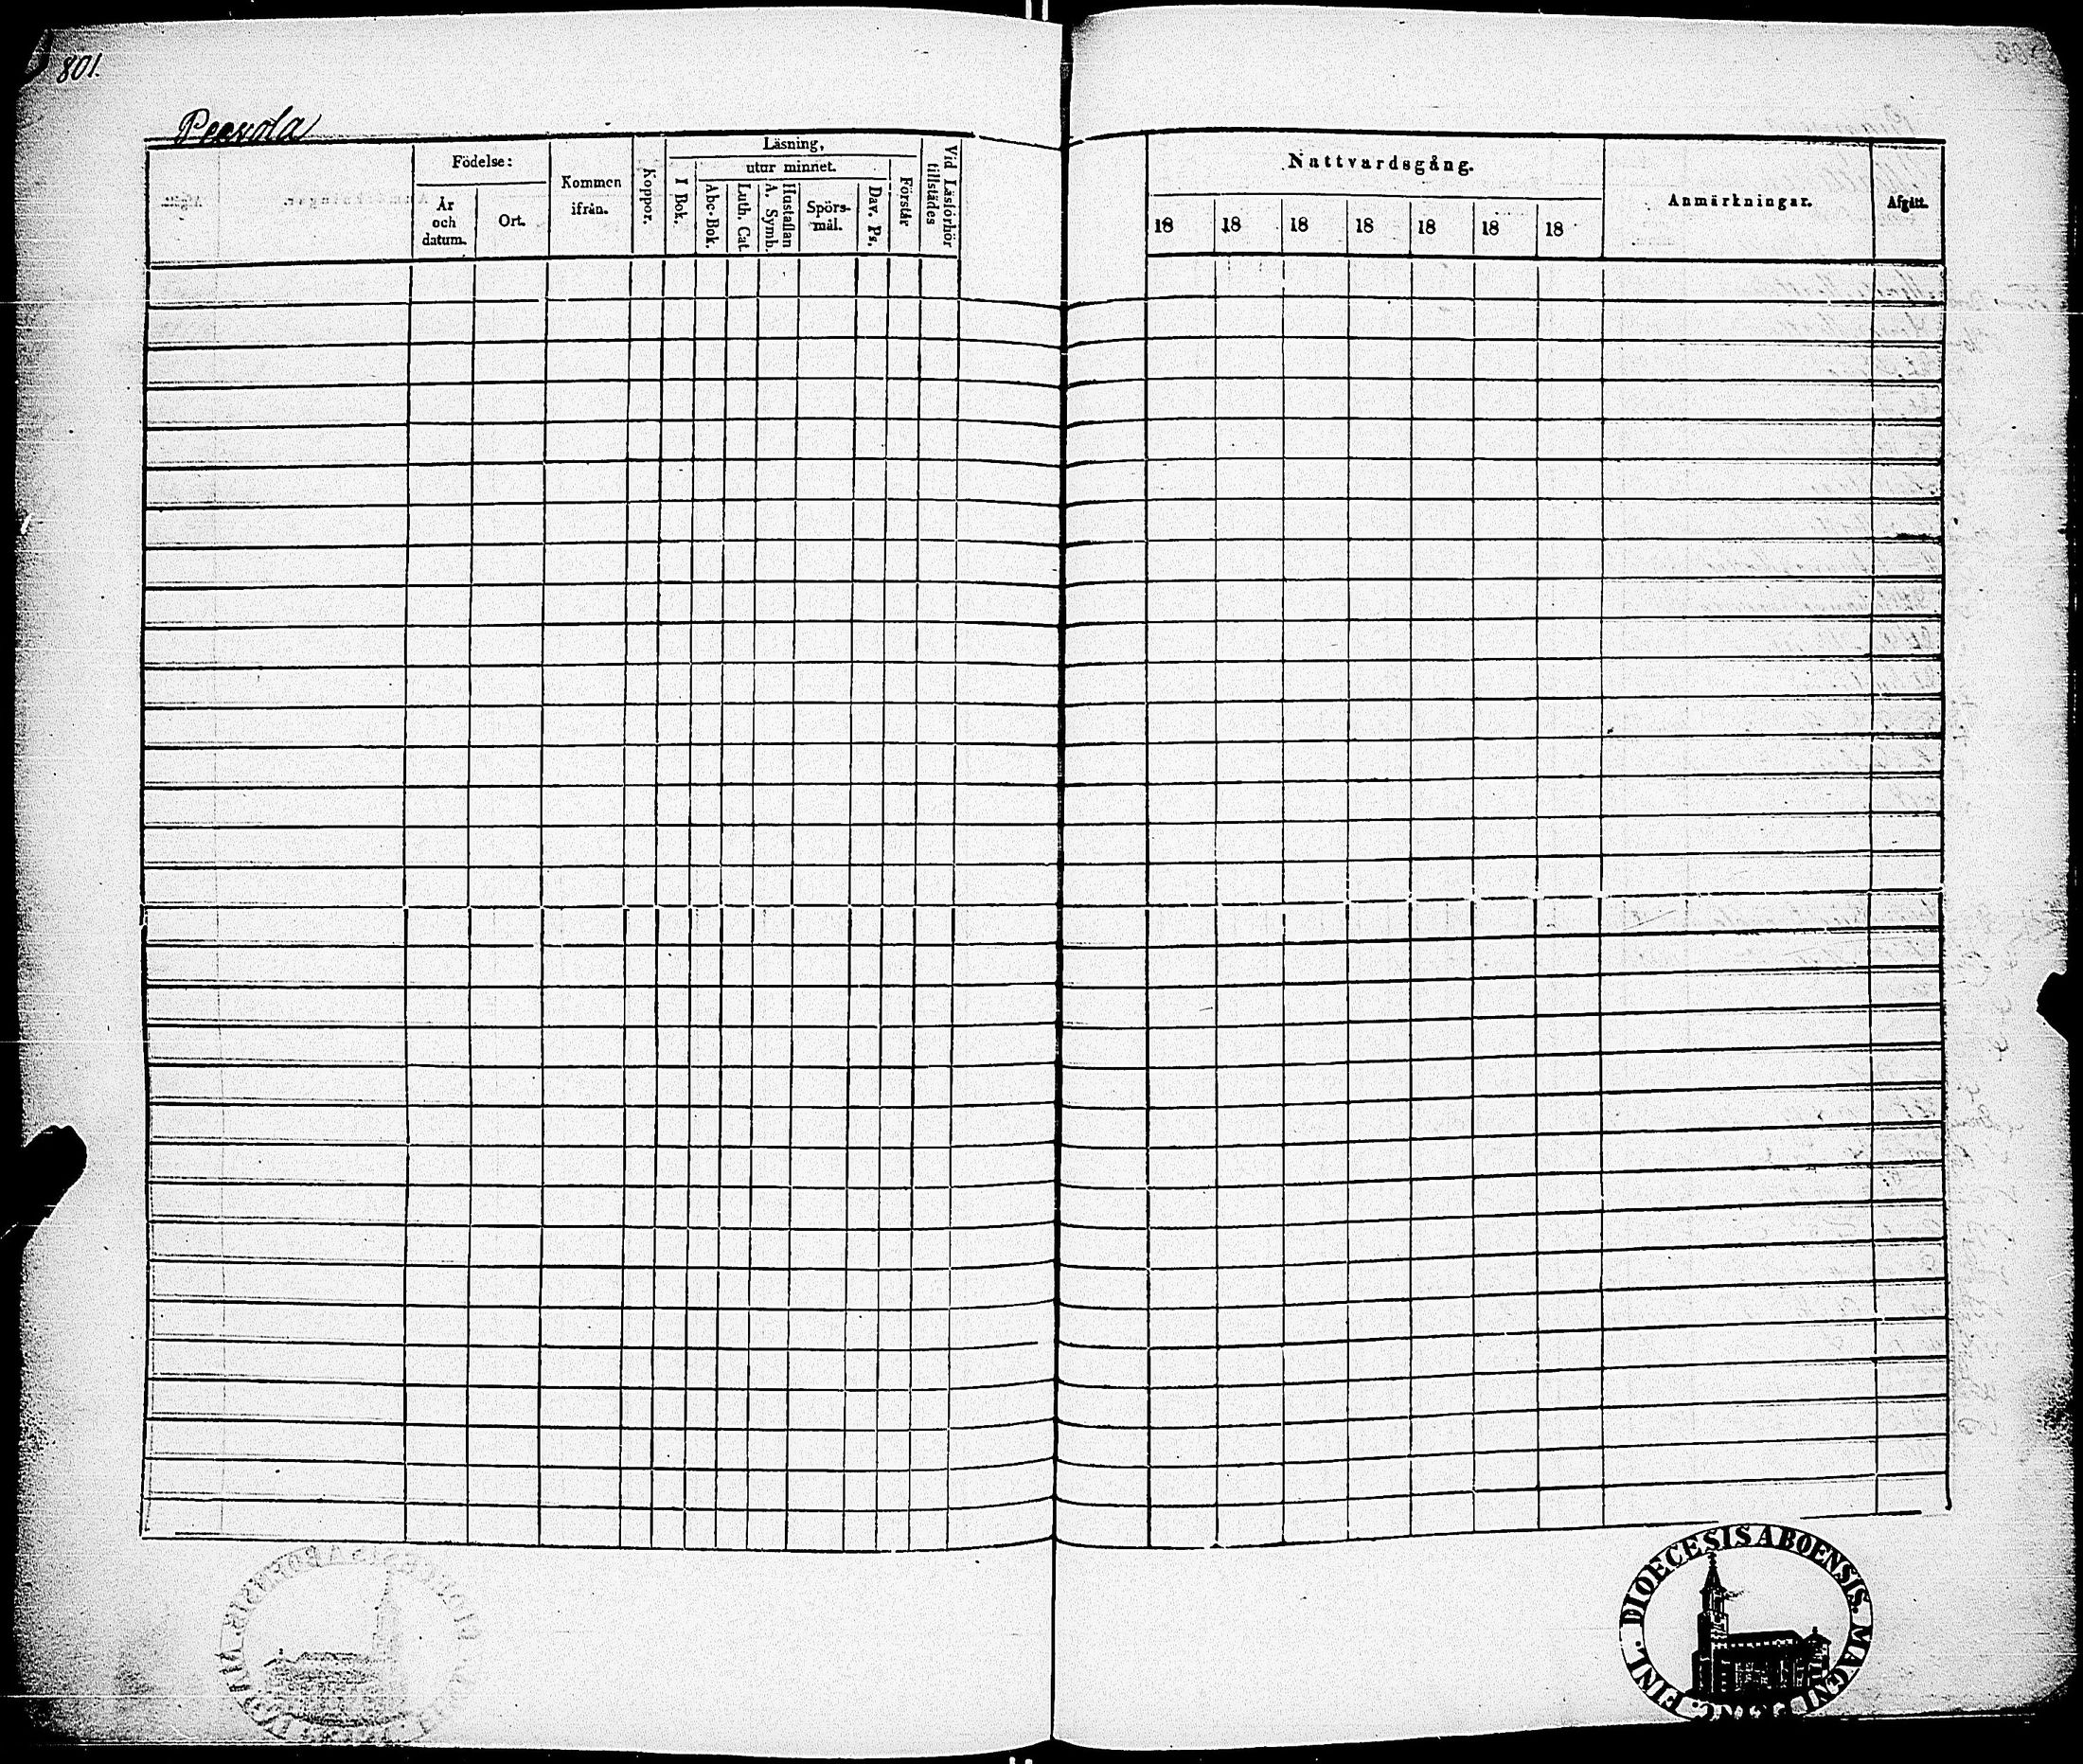 801.
Peevola
Födelse:
År
och
datum.
Ort.
Kommen
ifrån.
Koppor.
Läsning,
utur minnet.
I Bok.
Abc-Bok.
Luth. Cat.
Hustaflan
A. Symb.
Spörs-
mål.
Dav. Ps.
Förstår
Vid Läsförhör
tillstädes
Nattvardsgång.
18 18 18 18 18 18 18
Anmärkningar.
Afgått.
FINL. DIOECESIS ABOENSIS. MAGNI